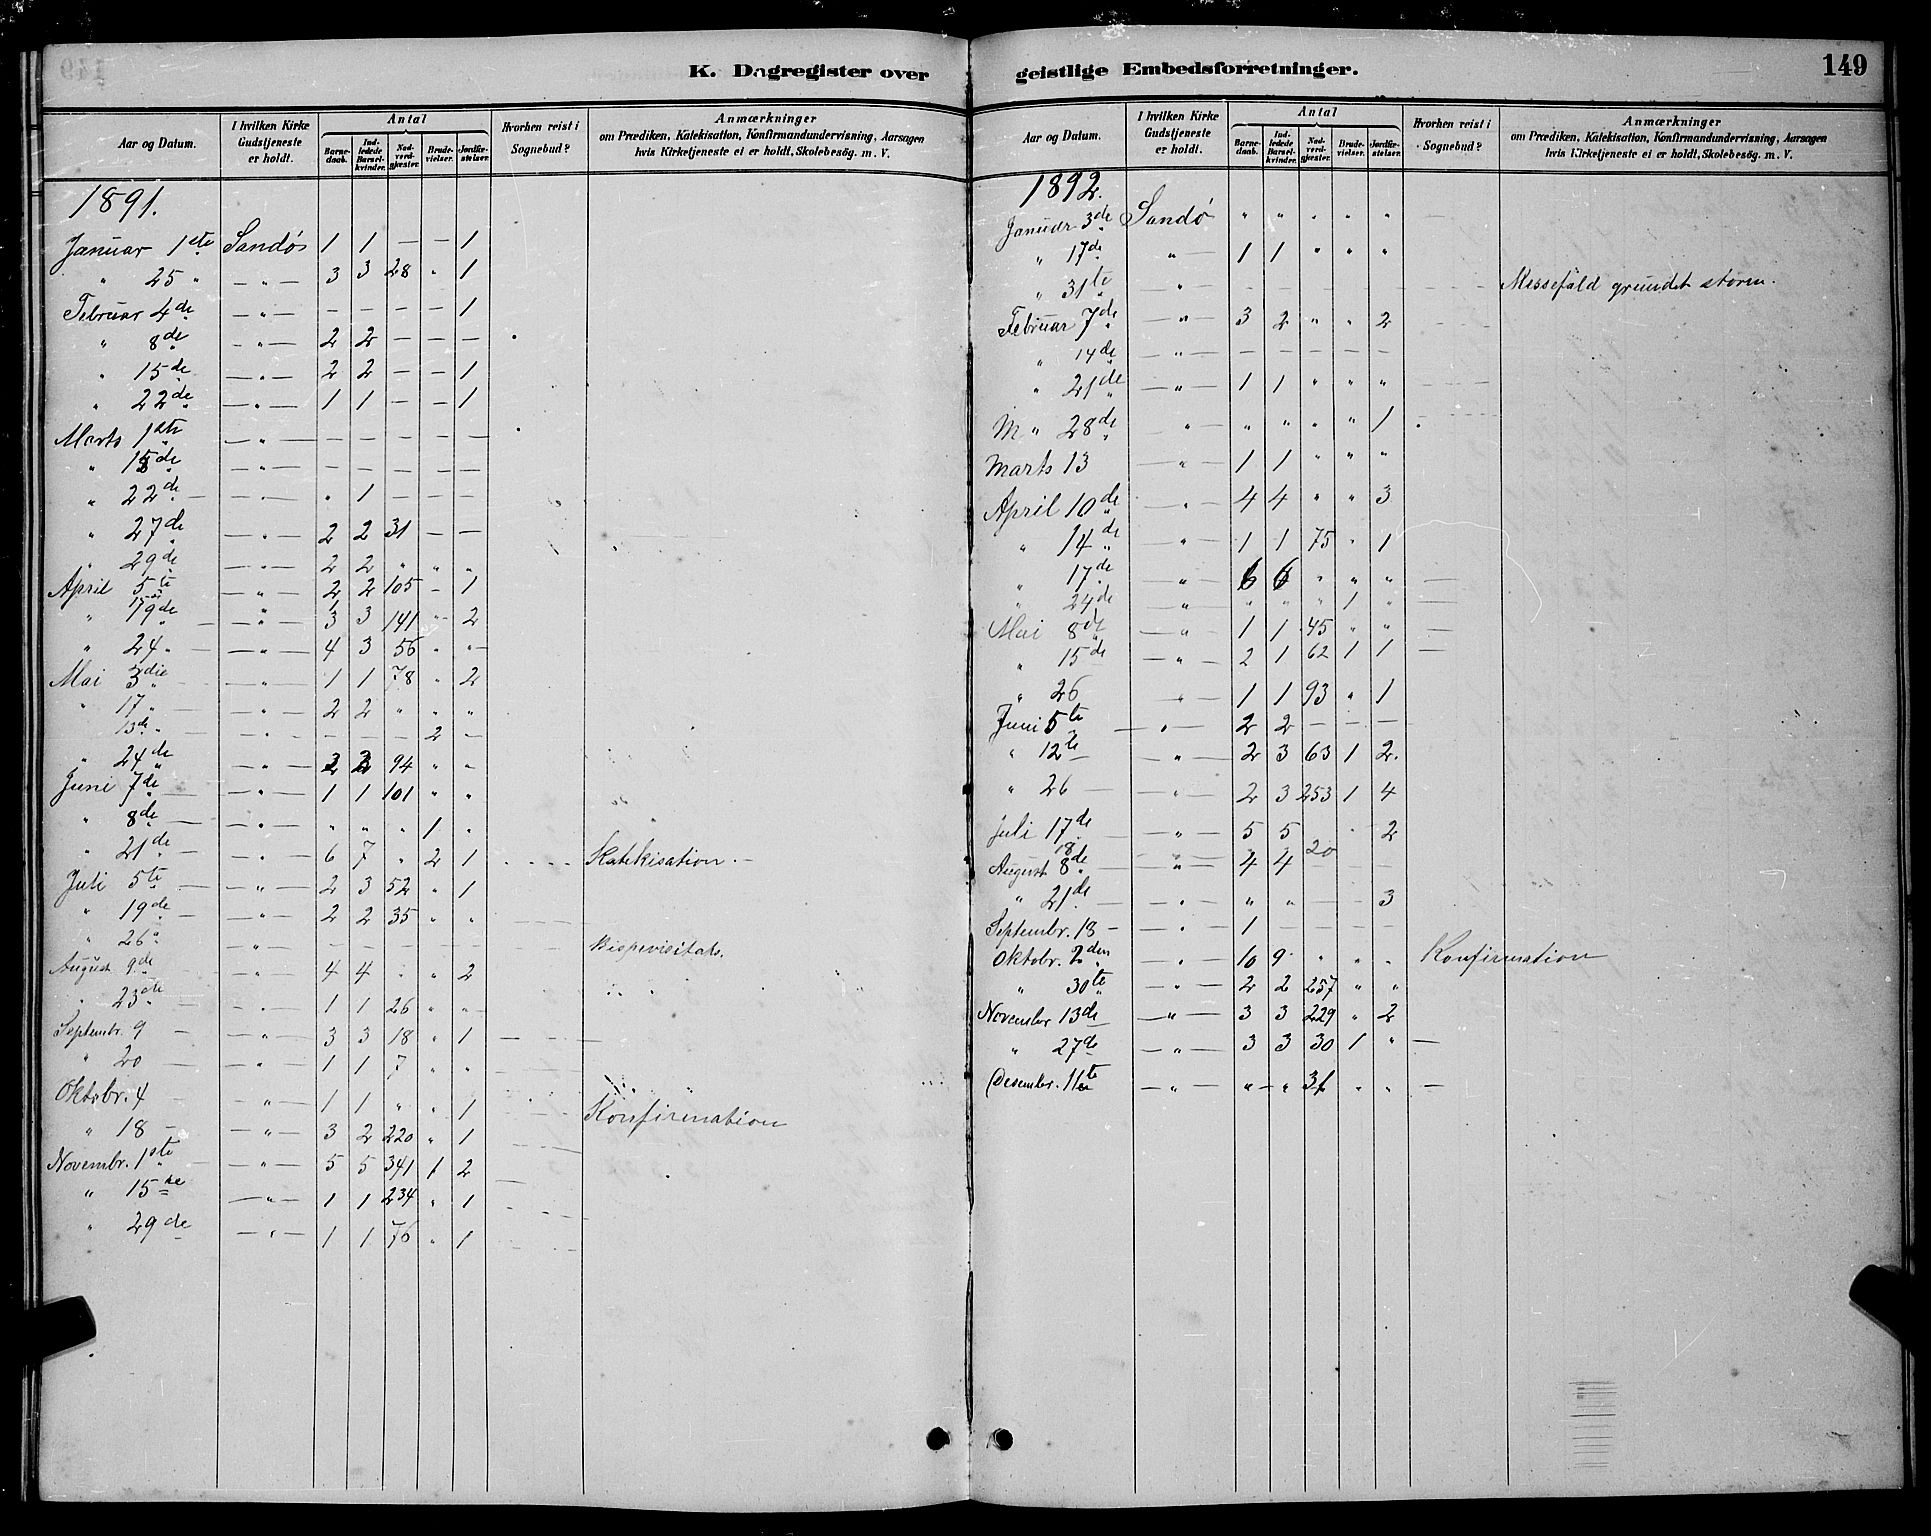 K. Dagregister over geistlige Embedsforretninger. 149
Aar og Datum. I hvilken Kirke Gudstjeneste er holdt. Antal Barnedaab. Indledede Barselkvinder. Nadverdgjester. Brudevielser. Jordfæstelser. Hvorhen reist i Sognebud? Anmærkninger om Prædiken, Katekisation, Konfirmandundervisning, Aarsagen hvis Kirketjeneste ei er holdt, Skolebesög. m. V.
1891.
Januar 1ste Sandøs 1 1 — — 1
" 25 " — " — 3 3 28 " 1
Februar 4de — " — — — — — 1
" 8de — " — 2 2 — — —
" 15de — " — 2 2 — — 1
" 22de — " — 1 1 — — 1
Marts 1ste — " — — — — — —
" 15de — " — — — — — —
" 22de — — " — " 1 — — —
" 27de — " — 2 2 31 — —
" 29de — " — 2 2 " " "
April 5te — " — 2 2 105 — 1
" 19de — — " — 3 3 141 " 2
" 24 " — — " — 4 3 56 " " —
Mai 3die — " — 1 1 78 " 2
" 17 " — " — 2 2 " " "
13de " — — " — — — — 2 —
" 24de — " — 2 94 " "
Juni 7de — — " — 1 1 101 " "
" 8de — — " — " " " 1 "
" 21de — — " — 6 7 " 2 1 Katekisation. —
Juli 5te — — " — 2 3 52 " 1
" 19de — — " — 2 2 35 " "
" 26 — " — — — — — — Bispevisitats.
August 9de — " — 4 4 " " 2
" 23de — — " — 1 1 26 " "
Septembr. 9 — — " — 3 3 18 " 1 —
" 20 — — " — 1 1 7 " "
Oktobr. 4 — — " — 1 1 " " 1
" 18 — — " — 3 2 220 " 1 Konfirmation
Novembr. 1ste — — " — 5 5 341 1 2
" 15de — " — 1 1 234 " 1
" 29de — " — 1 1 76 " 1
Aar og Datum. I hvilken Kirke Gudstjeneste er holdt. Antal Barnedaab. Indledede Barselkvinder. Nadverdgjester. Brudevielser. Jordfæstelser. Hvorhen reist i Sognebud? Anmærkninger om Prædiken, Katekisation, Konfirmandundervisning, Aarsagen hvis Kirketjeneste ei er holdt, Skolebesög. m. V.
1892.
Januar 3de Sandø " " " " " —
" 17de " 1 1 " " "
" 31te — " — — — — — — Messefald grundet storm.
Februar 7de — " — 3 2 " " 2
" 14de — " — — — — — —
" 21de — " — 1 1 " " "
M " 28de — " — " " " " 1
Marts 13 — " — 1 1 " " "
April 10de " 4 4 " " 3
" 14de — " — 1 1 75 " 1
" 17de — " — 6 6 " " " —
" 24de — " — " " " 1 " —
Mai 8de — " — 1 1 45 " " —
" 15de — " — 2 1 62 1 1 —
" 26 " — 1 1 93 " 1
Juni 5te — " — 2 2 — — —
" 12te — " — 2 3 63 1 2.
" 26 — — " — 2 3 253 1 4
Juli 17de — — " — 5 5 " 2
August 8de — " — 4 4 20 — —
" 21de — — " — " " — — 3
Septembr. 18 — — " — 1 — — — —
Oktobr. 2den — " — 10 9 " " " Konfirmation
" 30te — " — 2 2 257 " "
November 13de — " — 3 3 229 " 2
" 27de — " — 3 3 30 1 " —
Desembr. 11te — " — " — " 31 " " —